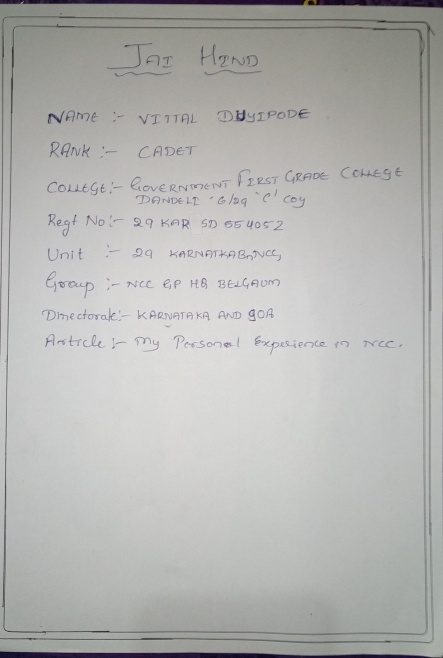 JAI HIND
NAME :- VITTAL DUYIPODE
RANK :- CADET
COLLEGE:- GOVERNMENT FIRST GRADE COLLEGE
DANDELI 6/29 'C' COY
Regt No:- 29 KAR SD 554052
Unit :- 29 KARNATKA Bn NCC,
Group :- NCC GP HQ BELGAUM
Directorate:- KARNATAKA AND GOA
Article :- My Personal Experience in NCC.